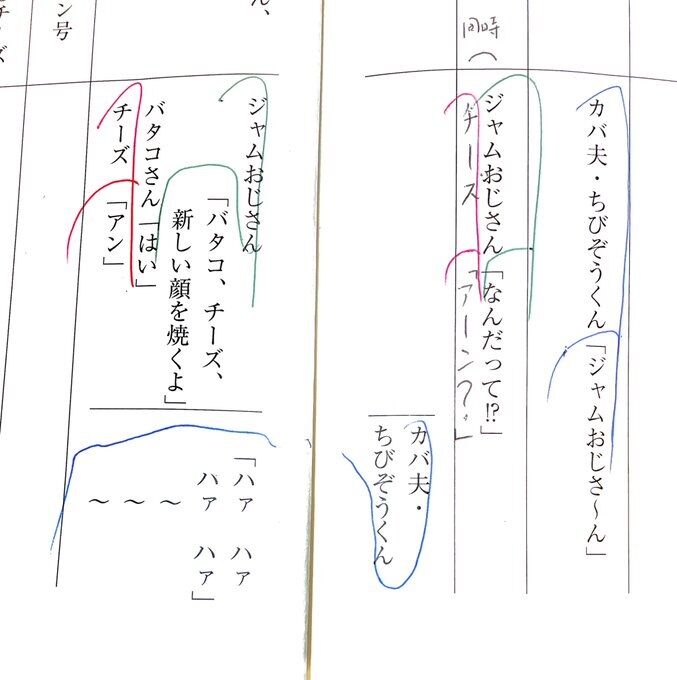 カバ夫・ちびぞうくん「ジャムおじさ〜ん」
ジャムおじさん「なんだって!?」
同時
チーズ「アーン?」
カバ夫・
ちびぞうくん
「ハァ ハァ
ハァ ハァ」
〜
〜
〜
ジャムおじさん
「バタコ、チーズ、
新しい顔を焼くよ」
バタコさん「はい」
チーズ「アン」
ン号